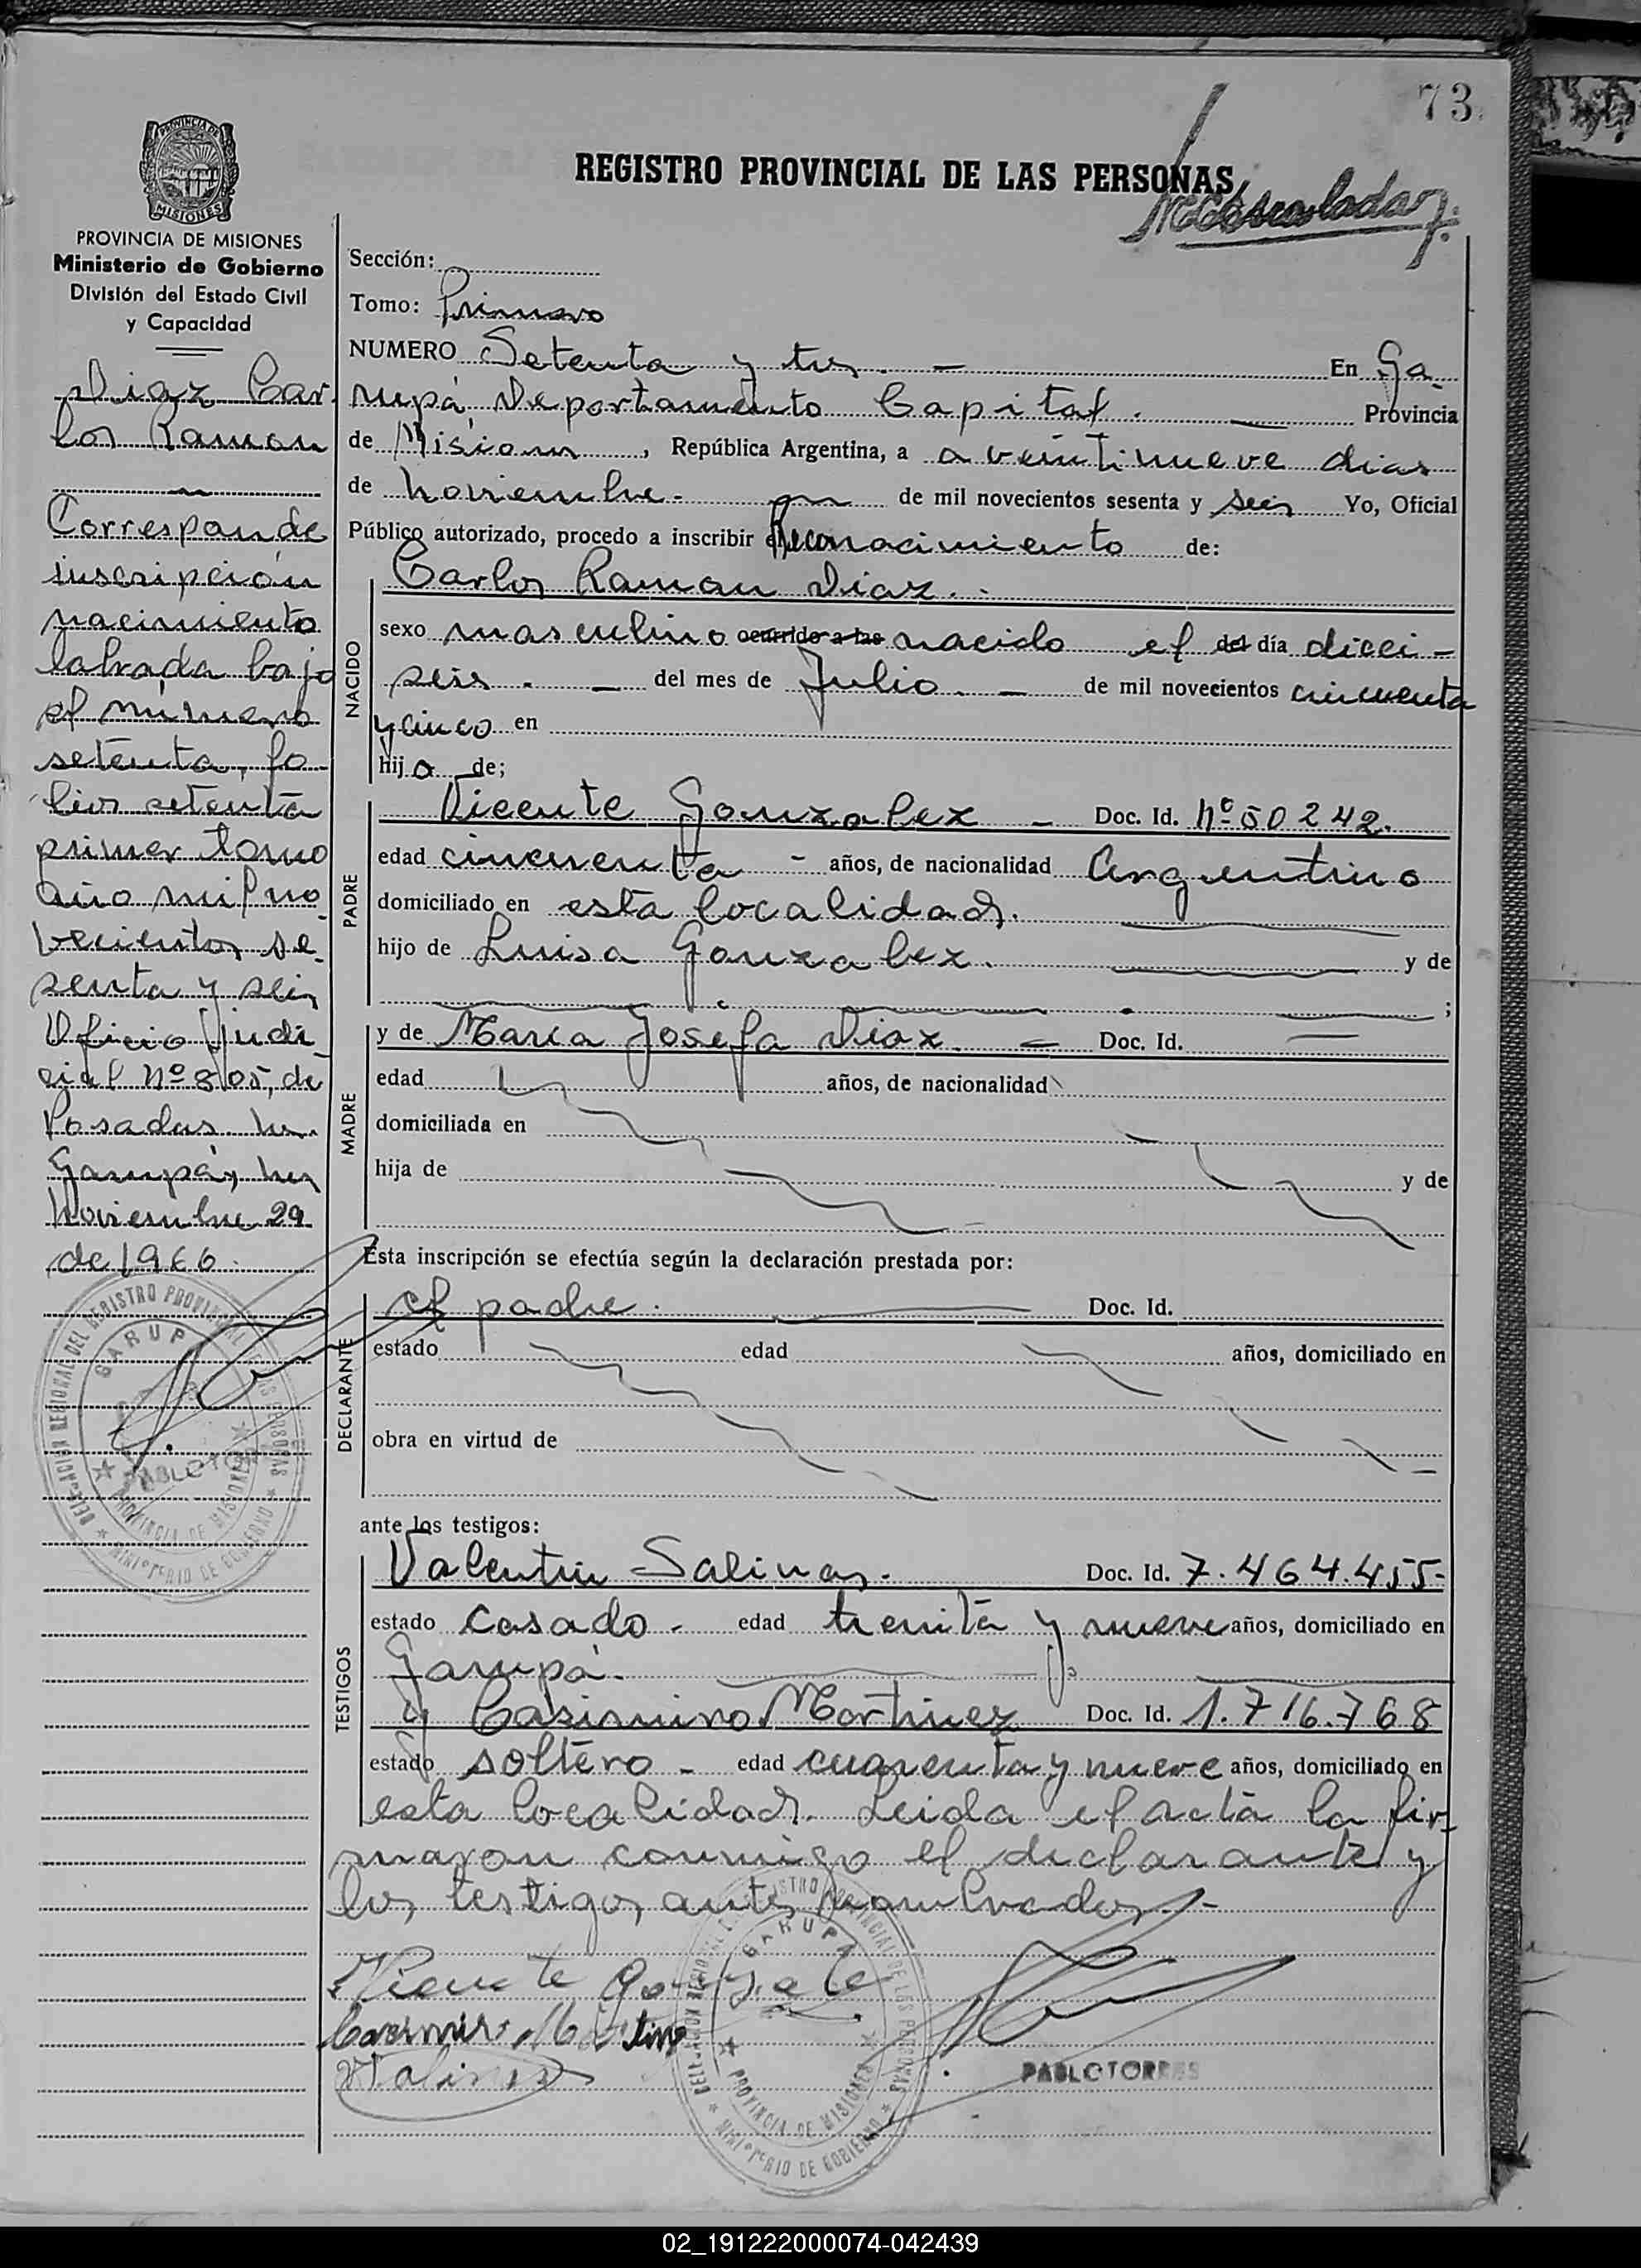 73.
REGISTRO PROVINCIAL DE LAS PERSONAS
PROVINCIA DE MISIONES
PROVINCIA DE MISIONES
Ministerio de Gobierno
División del Estado Civil
y Capacidad
Diaz Car
los Ramon
Corresponde
inscripción
nacimiento
labrada bajo
el número
setenta, fo
lios setenta
primer tomo
año mil no
vecientos se
senta y seis
Oficio Judi
cial Nº 805, de
Posadas
Garupá,
Noviembre 29
de 1966.
Sección:
Tomo: Primero
NUMERO Setenta y tres. — En Ga
rupá Departamento Capital. Provincia
de Misiones, República Argentina, a a veintinueve dias
de noviembre. de mil novecientos sesenta y seis Yo, Oficial
Público autorizado, procedo a inscribir el Reconocimiento de:
NACIDO
Carlos Ramon Diaz.
sexo masculino ocurrido a las nacido el del día dieci -
seis. — del mes de Julio. — de mil novecientos cincuenta
y cinco en
hijo de;
PADRE
Vicente Gonzalez — Doc. Id. Nº 50242.
edad cincuenta - años, de nacionalidad Argentino
domiciliado en esta localidad.
hijo de Luisa Gonzalez. y de
;
MADRE
y de Maria Josefa Diaz. — Doc. Id. —
edad años, de nacionalidad
domiciliada en
hija de y de
Esta inscripción se efectúa según la declaración prestada por:
DECLARANTE
el padre. Doc. Id.
estado edad años, domiciliado en
obra en virtud de
ante los testigos:
TESTIGOS
Valentin Salinas. Doc. Id. 7.464.455-
estado casado - edad treinta y nueve años, domiciliado en
Garupá.
y Casimiro Martinez Doc. Id. 1.716.768
estado soltero - edad cuarenta y nueve años, domiciliado en
esta localidad. Leida el acta la fir-
maron conmigo el declarante y
los testigos antes nombrados.-
Vicente Gonzale
Casimir Martine
VSalinas
DELEGACION REGIONAL DEL REGISTRO PROVINCIAL DE LAS PERSONAS
GARUPA
PROVINCIA DE MISIONES
MINISTERIO DE GOBIERNO
PABLO TORRES
02_191222000074-042439